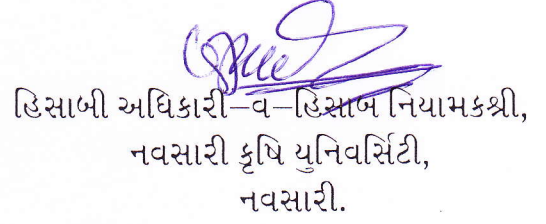 હિસાબી અધિકારી-વ-હિસાબ નિયામકશ્રી,
નવસારી કૃષિ યુનિવર્સિટી,
નવસારી.